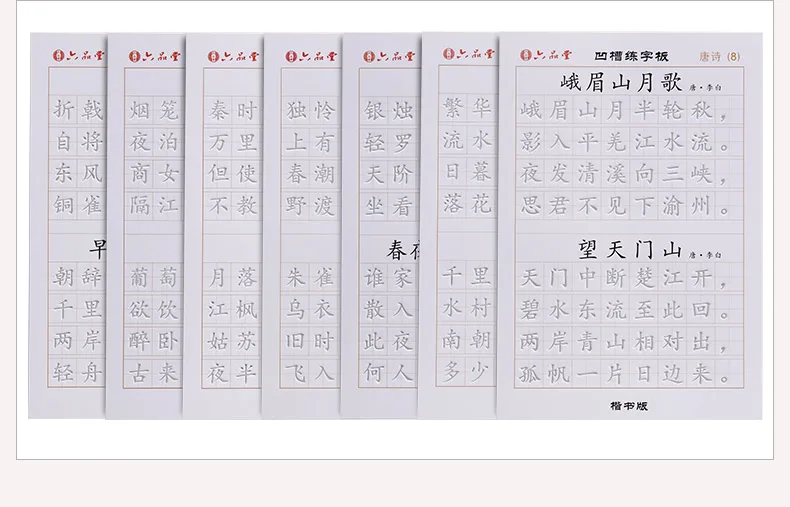 六品堂
折戟
自将
东风
铜雀
早
朝辞
千里
两岸
轻舟
六品堂
烟笼
夜泊
商女
隔江
葡萄
欲饮
醉卧
古来
六品堂
秦时
万里
但使
不教
月落
江枫
姑苏
夜半
六品堂
独怜
上有
春潮
野渡
朱雀
乌衣
旧时
飞入
六品堂
银烛
轻罗
天阶
坐看
春夜
谁家
散入
此夜
何人
六品堂
繁华
流水
日暮
落花
千里
水村
南朝
多少
六品堂 凹槽练字板 唐诗 (8)
峨眉山月歌 唐·李白
峨眉山月半轮秋，
影入平羌江水流。
夜发清溪向三峡，
思君不见下渝州。
望天门山 唐·李白
天门中断楚江开，
碧水东流至此回。
两岸青山相对出，
孤帆一片日边来。
楷书版